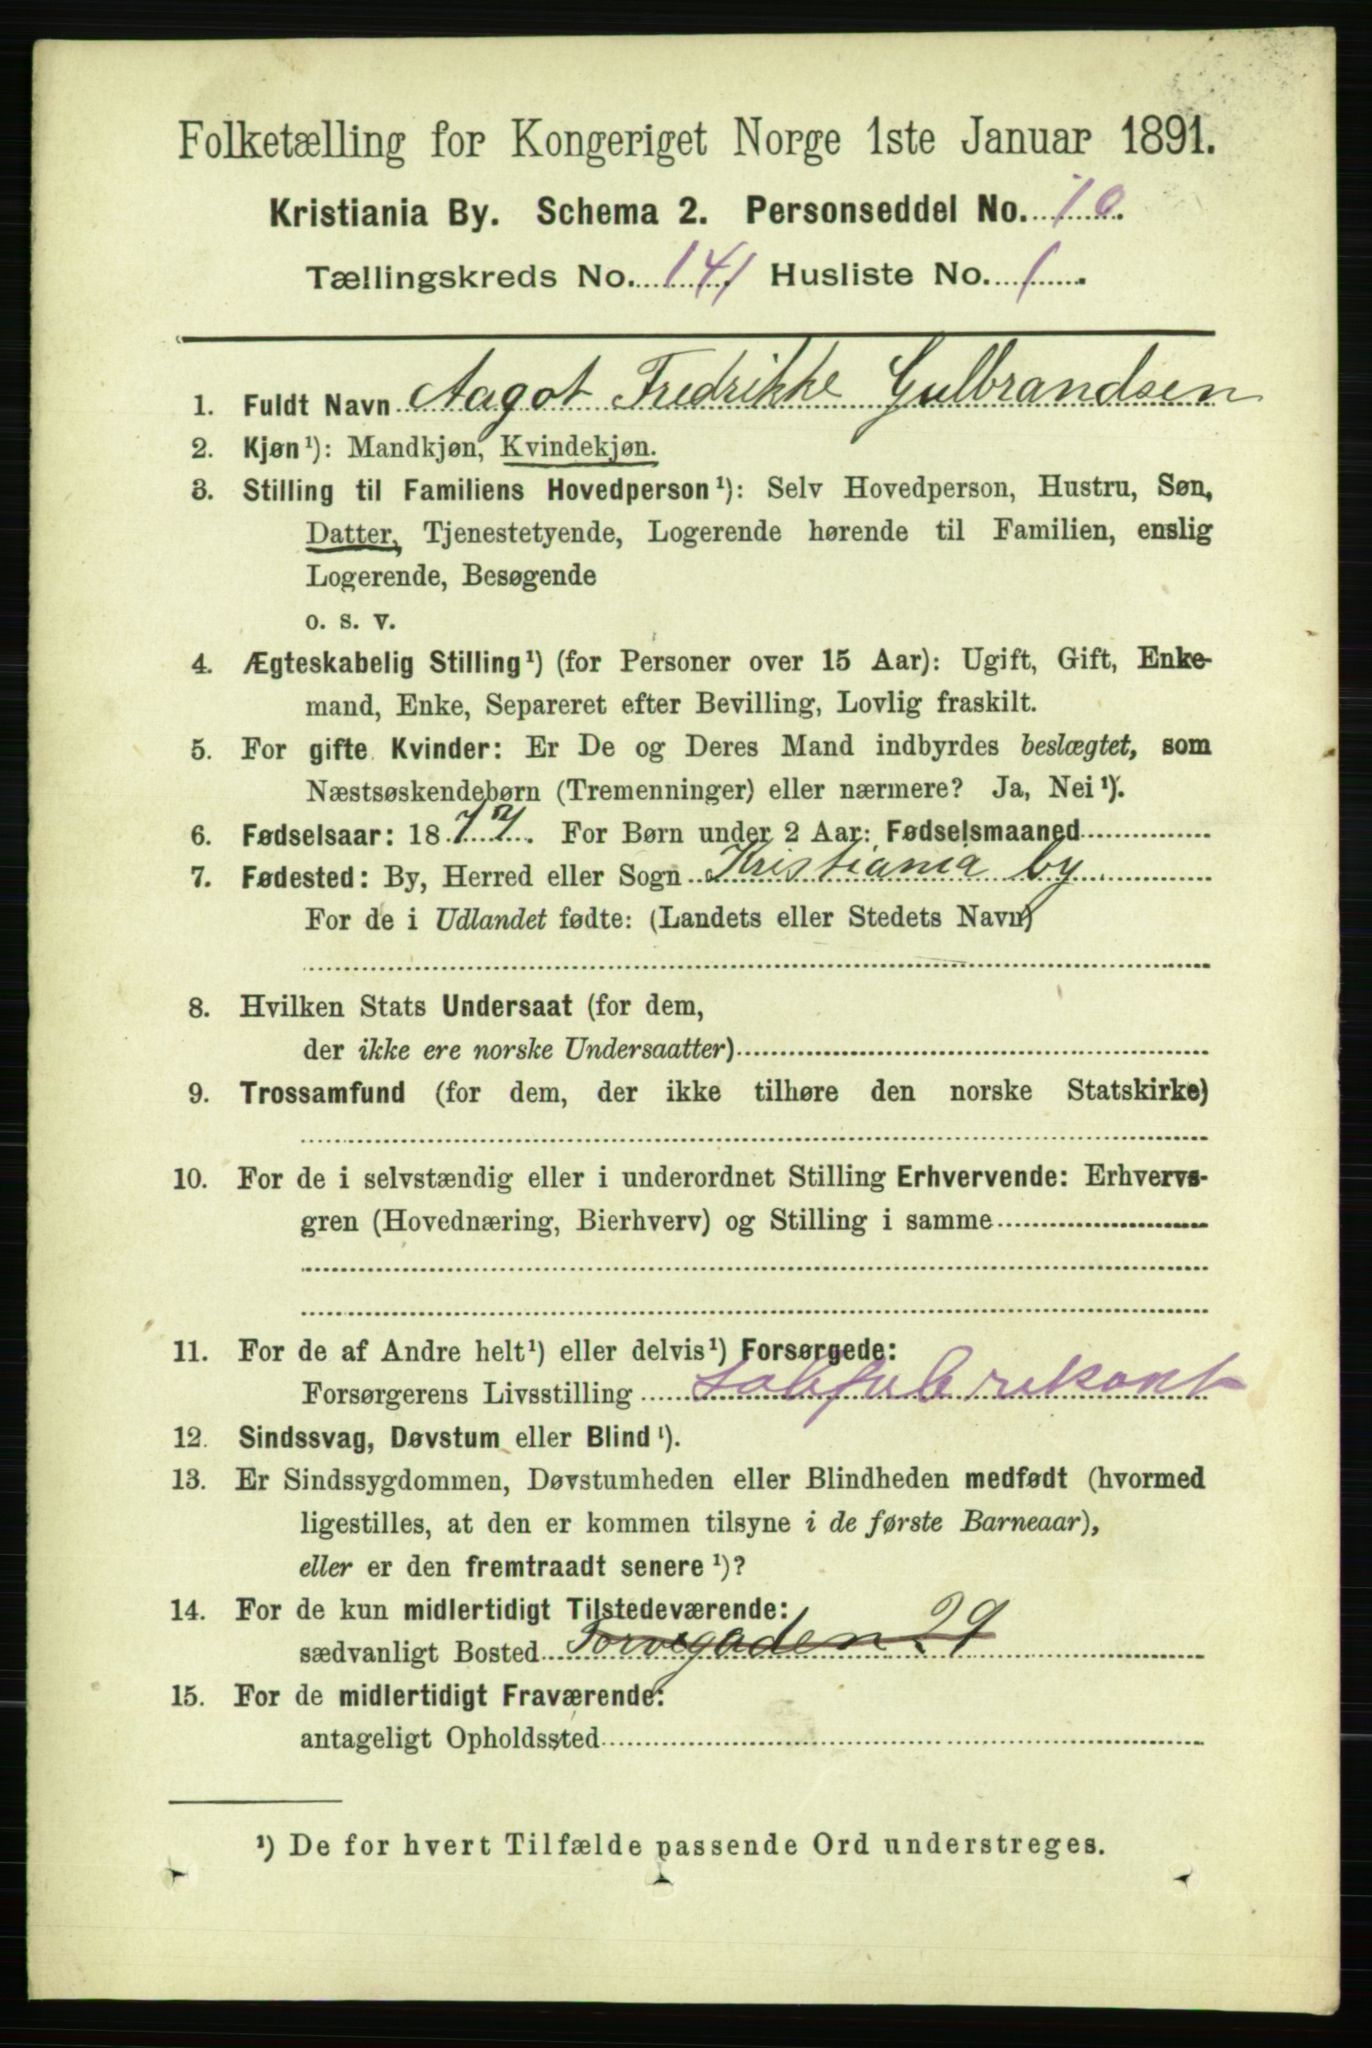 Folketælling for Kongeriget Norge 1ste Januar 1891.
Kristiania By. Schema 2. Personseddel No. 10.
Tællingskreds No. 141 Husliste No. 1.
1. Fuldt Navn Aagot Fredrikke Gulbrandsen
2. Kjøn¹): Mandkjøn, Kvindekjøn.
3. Stilling til Familiens Hovedperson¹): Selv Hovedperson, Hustru, Søn,
Datter, Tjenestetyende, Logerende hørende til Familien, enslig
Logerende, Besøgende
o. s. v.
4. Ægteskabelig Stilling¹) (for Personer over 15 Aar): Ugift, Gift, Enke-
mand, Enke, Separeret efter Bevilling, Lovlig fraskilt.
5. For gifte Kvinder: Er De og Deres Mand indbyrdes beslægtet, som
Næstsøskendebørn (Tremenninger) eller nærmere? Ja, Nei¹).
6. Fødselsaar: 1877. For Børn under 2 Aar: Fødselsmaaned
7. Fødested: By, Herred eller Sogn Kristiania by
For de i Udlandet fødte: (Landets eller Stedets Navn)
8. Hvilken Stats Undersaat (for dem,
der ikke ere norske Undersaatter)
9. Trossamfund (for dem, der ikke tilhøre den norske Statskirke)
10. For de i selvstændig eller i underordnet Stilling Erhvervende: Erhvervs-
gren (Hovednæring, Bierhverv) og Stilling i samme
11. For de af Andre helt¹) eller delvis¹) Forsørgede:
Forsørgerens Livsstilling
12. Sindssvag, Døvstum eller Blind¹).
13. Er Sindssygdommen, Døvstumheden eller Blindheden medfødt (hvormed
ligestilles, at den er kommen tilsyne i de første Barneaar),
eller er den fremtraadt senere¹)?
14. For de kun midlertidigt Tilstedeværende:
sædvanligt Bosted Torvegaden 29
15. For de midlertidigt Fraværende:
antageligt Opholdssted
¹) De for hvert Tilfælde passende Ord understreges.